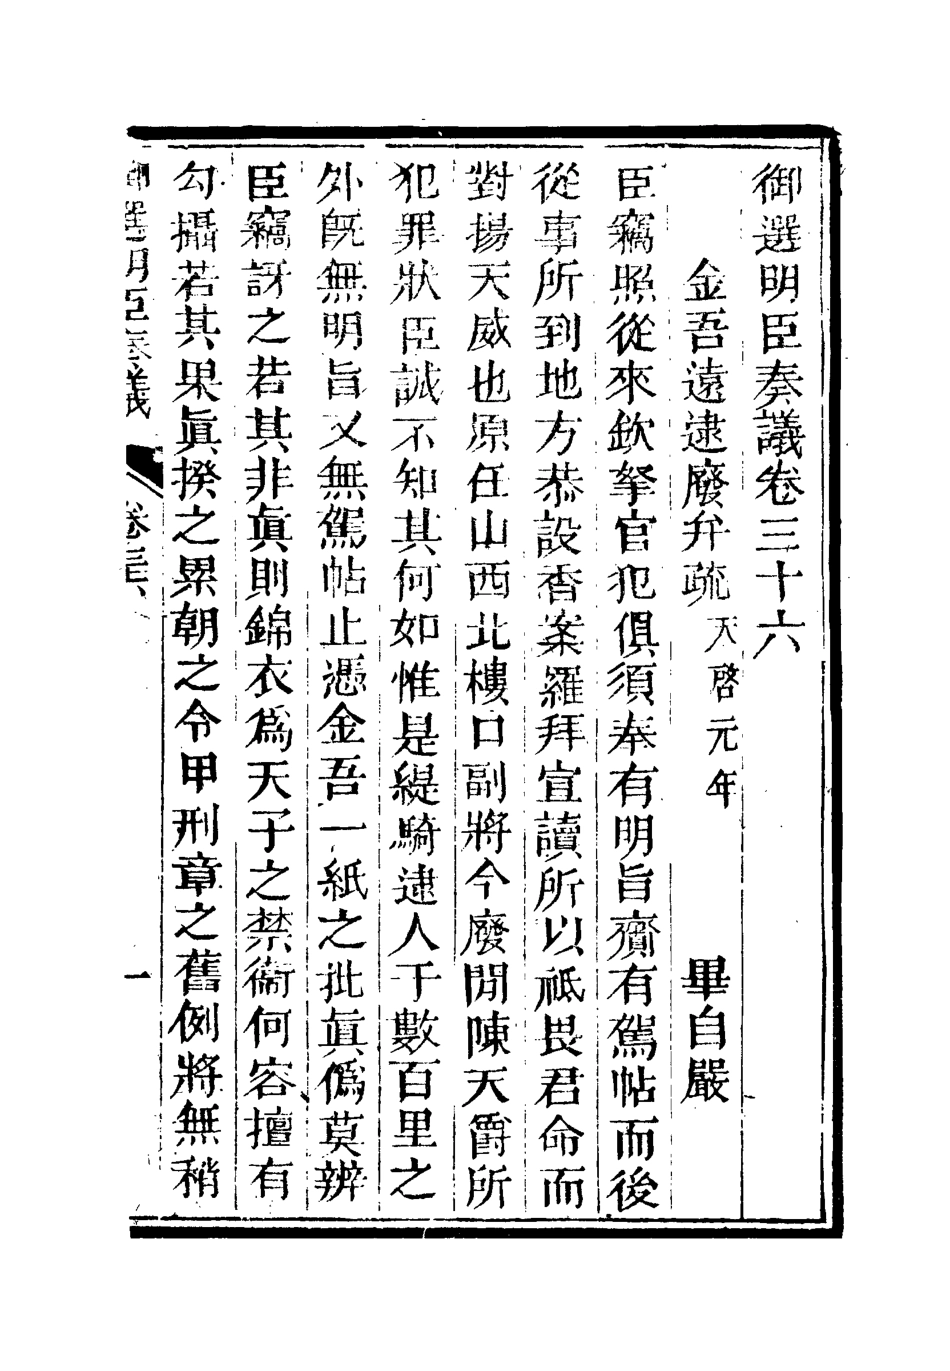 御選明臣奏議卷三十六
金吾遠逮廢弁疏 天啓元年 畢自嚴
臣竊照從來欽拏官犯俱須奉有明旨齎有駕帖而後
從事所到地方恭設香案羅拜宣讀所以祗畏君命而
對揚天威也原任山西北樓口副將今廢閒陳天爵所
犯罪狀臣誠不知其何如惟是緹騎逮人于數百里之
外旣無明旨又無駕帖止憑金吾一紙之批眞僞莫辨
臣竊訝之若其非眞則錦衣爲天子之禁衞何容擅有
勾攝若其果眞揆之累朝之令甲刑章之舊例將無稍
御選明臣奏議 卷三六 一